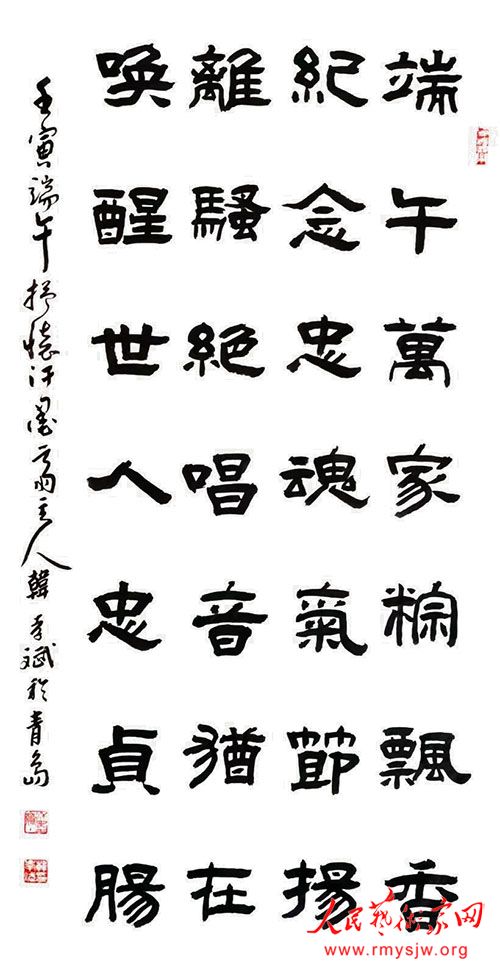 端午萬家粽飄香
紀念忠魂氣節揚
離騷絕唱音猶在
喚醒世人忠貞腸
壬寅端午抒懷汗墨齋主人韓秀斌於青島
人民藝術家网
www.rmysjw.org